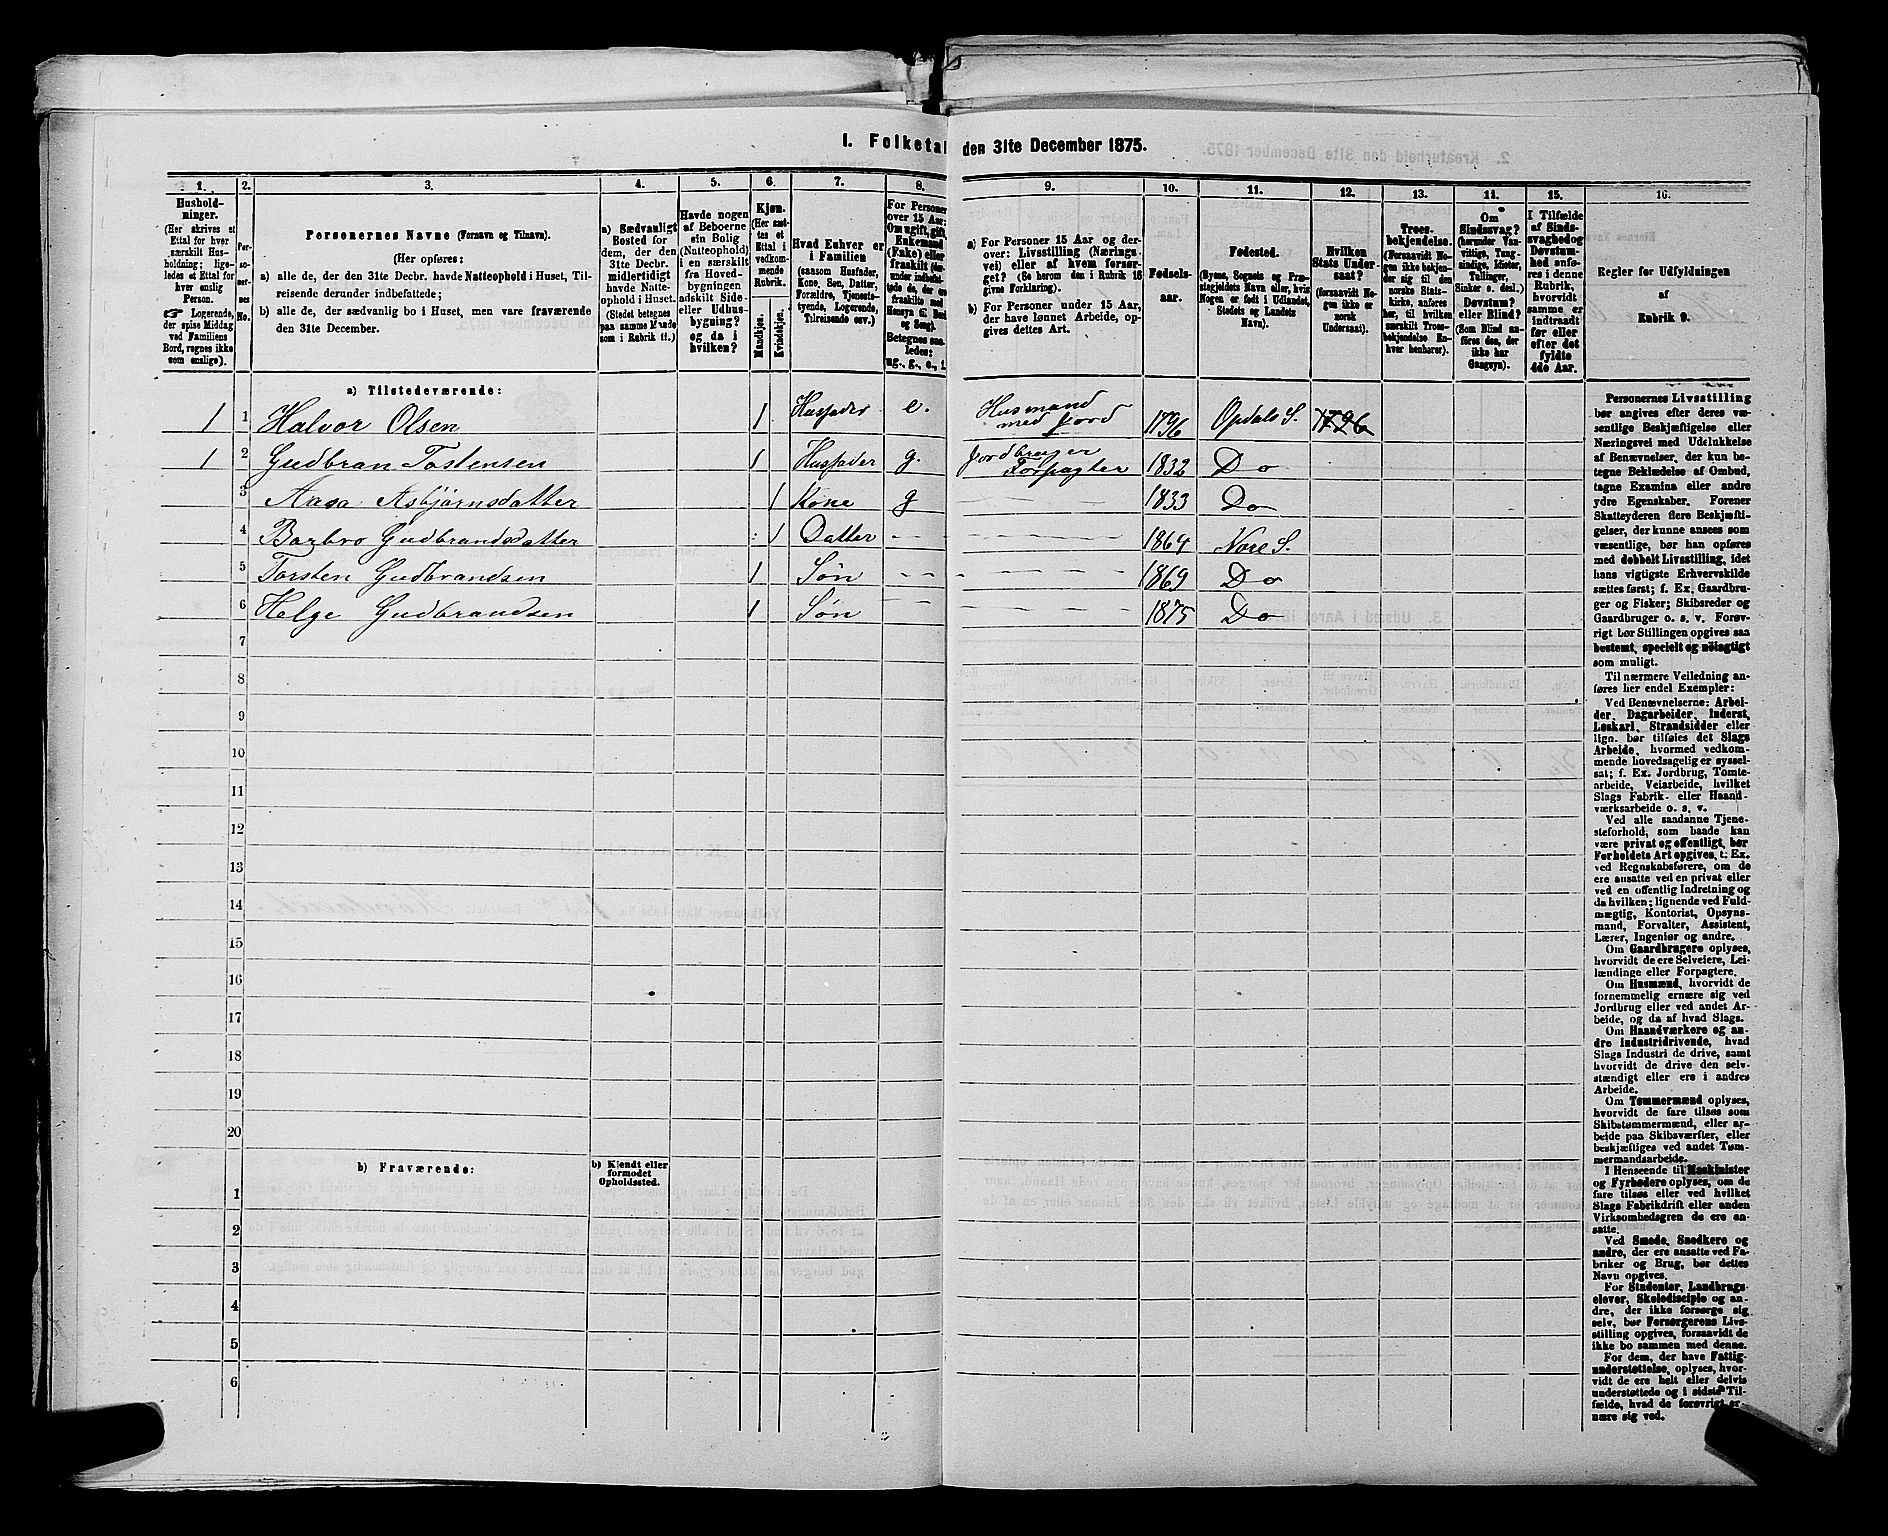 I. Folketal den 31te December 1875.
1. 2. 3. 4. 5. 6. 7. 8. 9. 10. 11. 12. 13. 14. 15. 16.
Hushold-
ninger.
(Her skrives et
Ettal for hver
særskilt Hus-
holdning; lige-
ledes et Ettal for
hver enslig
Person.
☞ Logerende,
der spise Middag
ved Familiens
Bord, regnes ikke
som enslige).
Per-
so-
ner-
nes
No.
Personernes Navne (Fornavn og Tilnavn).
(Her opføres:
a) alle de, der den 31te Decbr. havde Natteophold i Huset, Til-
reisende derunder indbefattede;
b) alle de, der sædvanlig bo i Huset, men vare fraværende
den 31te December.
a) Sædvanligt
Bosted for
dem, der den
31te Decbr.
midlertidigt
havde Natte-
ophold i Huset.
(Stedet betegnes
paa samme Maade
som i Rubrik 11.)
Havde nogen
af Beboerne
sin Bolig
(Natteophold)
i en særskilt
fra Hoved-
bygningen
adskilt Side-
eller Udhus-
bygning?
og da i
hvilken?
Kjøn.
(Her sæt-
tes et
Ettal i
vedkom-
mende
Rubrik.
Mandkjøn.
Kvindekjøn.
Hvad Enhver er
i Familien
(saasom Husfader,
Kone, Søn, Datter,
Forældre, Tjenests-
tyende, Logerende,
Tilreisende osv.)
For Personer
over 15 Aar:
Om ugift, gift,
Enkemand
(Enke) eller
fraskilt
Betegnes saa-
ledes:
ug., g., e., f.
a) For Personer 15 Aar og der-
over: Livsstilling (Nærings-
vei) eller af hvem forsør-
get? (Se herom den i Rubrik 16
givne Forklaring).
b) For Personer under 15 Aar,
der have lønnet Arbeide, op-
gives dettes Art.
Fødsels-
aar.
Fødested.
(Byens, Sognets og Præ-
stegjeldets Navn eller, hvis
Nogen er født i Udlandet,
Stedets og Landets
Navn).
Hvilken
Stats Under-
saat?
(forsaavidt No-
gen ikke er
norsk
Undersaat).
Troes-
bekjendelse.
(Forsaavidt No-
gen ikke bekjen-
der sig til den
norske Stats-
kirke, anføres
her, til hvilken
særskilt Troes-
bekjendelse En-
hver henhører).
Om
Sindssvag?
(herunder Van-
vittige, Tung-
sindige, Idioter,
Tullinger,
Sinker o. desl.)
Døvstum?
eller Blind?
(Som Blind an-
føres den, der
ikke har
Gangsyn).
I Tilfælde
af Sinds-
svaghed og
Døvstum-
hed anfø-
res i denne
Rubrik,
hvorvidt
samme er
indtraadt
før eller
efter det
fyldte
4de Aar.
Regler for Udfyldningen
af
Rubrik 9.
a) Tilstedeværende:
1 1 Halvor Olsen 1 Husfader e. Husmand med Jord 1796 Opdals S. 1796
1 2 Gudbran Tostensen 1 Husfader g. Jordbruger Forpagter 1832 Do
3 Aasa Asbjørnsdatter 1 Kone g — 1833 Do
4 Barbro Gudbrandsdatter 1 Datter — 1864 Nore S.
5 Torsten Gudbrandsen 1 Søn — 1869 Do
6 Helge Gudbrandsen 1 Søn — 1875 Do
7
8
9
10
11
12
13
14
15
16
17
18
19
20
b) Fraværende:
b) Kjendt eller
formodet
Opholdssted.
1
2
3
4
5
6
Personernes Livsstilling
bør angives efter deres væ-
sentlige Beskjæftigelse eller
Næringsvei med Udelukkelse
af Benævnelser, der kun be-
tegne Beklædelse af Ombud,
tagne Examina eller andre
ydre Egenskaber. Forener
Skatteyderen flere Beskjæfti-
gelser, der kunne ansees som
væsentlige, bør han opføres
med dobbelt Livsstilling, idet
hans vigtigste Erhvervskilde
sættes først; f. Ex. Gaardbru-
ger og Fisker; Skibsreder og
Gaardbruger o. s. v. Forøv-
rigt bør Stillingen opgives saa
bestemt, specielt og nöiagtigt
som muligt.
Til nærmere Veiledning an-
føres her endel Exempler:
Ved Benævnelserne: Arbei-
der, Dagarbeider, Inderst,
Løskarl, Strandsidder eller
lign. bør tilføies det Slags
Arbeide, hvormed vedkom-
mende hovedsagelig er syssel-
sat; f. Ex. Jordbrug, Tomte-
arbeide, Veiarbeide, hvilket
Slags Fabrik- eller Haand-
værksarbeide o. s. v.
Ved alle saadanne Tjene-
steforhold, som baade kan
være privat og offentligt, bør
Forholdets Art opgives, t. Ex.
ved Regnskabsførere, om de
ere ansatte ved en privat eller
ved en offentlig Indretning og
da hvilken; lignende ved Fuld-
mægtig, Kontorist, Opsyns-
mand, Forvalter, Assistent,
Lærer, Ingeniør og andre.
Om Gaardbrugere oplyses,
hvorvidt de ere Selveiere, Lei-
lændinge eller Forpagtere.
Om Husmænd, hvorvidt de
fornemmelig ernære sig ved
Jordbrug eller ved andet Ar-
beide, og da af hvad Slags.
Om Haandværkere og an-
dre industridrivende, hvad
Slags Industri de drive, samt
hvorvidt de drive den selv-
stændigt eller ere i andres
Arbeide.
Om Tømmermænd oplyses,
hvorvidt de fare tilsøs som
Skibstømmermænd, eller ar-
beide paa Skibsværfter, eller
beskjæftiges ved andet Tøm-
mermandsarbeide.
I Henseende til Maskinister
og Fyrbødere oplyses, om de
fare tilsøs eller ved hvilket
Slags Fabrikdrift eller anden
Virksomhedsgren de ere an-
satte.
Ved Smede, Snedkere og
andre, der ere ansatte ved Fa-
briker og Brug, bør dettes
Navn opgives.
For Studenter, Landbrugs-
elever, Skoledisciple og an-
dre, der ikke forsørge sig
selv, bør Forsørgerens Livs-
stilling opgives, forsaavidt de
ikke bo sammen med denne.
For dem, der have Fattig-
understøttelse, oplyses, hvor-
vidt de ere helt eller delvis
understøttede og i sidste Til-
fælde, hvad de forøvrigt er-
nære sig ved.